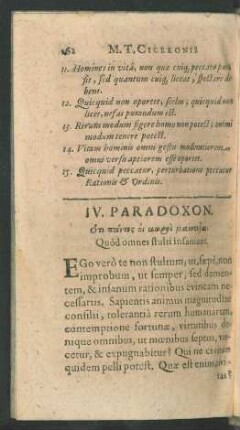 162 M. T. CICERONIS
11. Homines in vita, non quæ cuiq, peccare
sit, sed quantum cuiq, liceat, spectare de-
bent.
12. Quicquid non oportet, scelus; quicquid non
licet, nefas putandum est.
13. Rerum modum figere homo non potest; animi
modum tenere potest.
14. Vitam hominis omni gestu moderatiorem,
omni versu aptiorem esse oportet.
15. Quicquid peccatur, perturbatione peccatur
Rationis & Ordinis.
IV. PARADOXON.
Ὅτι πάντες οἱ μωροὶ
Quòd omnes stulti insaniant.
EGo verò te non stultum, ut sæpè, non
improbum, ut semper; sed demen-
tem, & insanum rationibus evincam ne-
cessariis. Sapientis animus magnitudine
consilii, tolerantiâ rerum humanarum,
contemptione fortunæ, virtutibus de-
nique omnibus, ut mœnibus septus, vin-
cetur, & expugnabitur? Qui ne civitate
quidem pelli potest. Quæ est enim
tas?